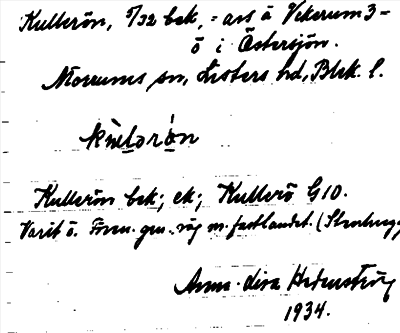 Kullerön, 5/32 bek, = ars å Vekerum 3 -
ö i Östersjön.
Mörrums sn, Listers hd, Blek. l.
kùlǝrǿn
Kullerön bek; ek; Kullerö G10.
Varit ö. Fören. gm. väg m. fastlandet. (Stenbergg
Anna-Lisa Hedenström
1934.